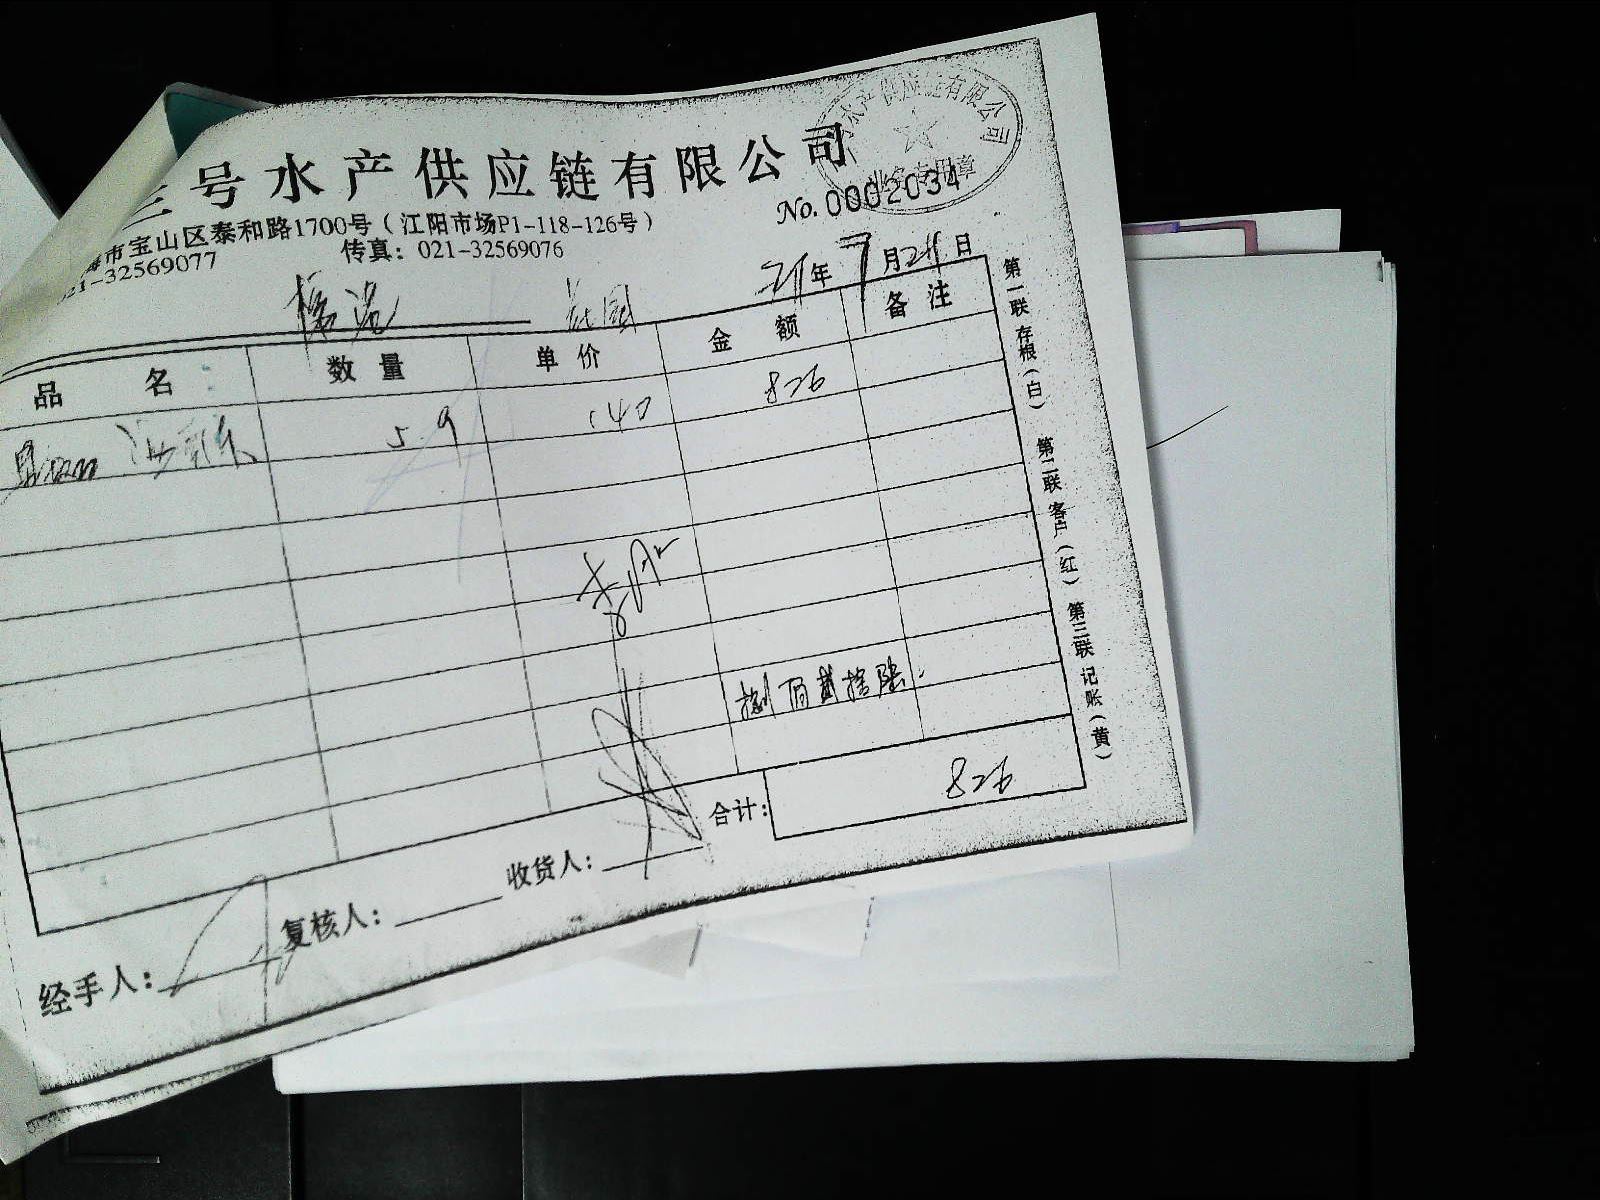 三号水产供应链有限公司
水产供应链有限公司
业务专用章
No. 0002034
海市宝山区泰和路1700号（江阳市场P1-118-126号）
021-32569077 传真：021-32569076
21年 7月 21日
品名 数量 单价 金额 备注
59 140 826
捌佰贰拾陆
合计： 826
经手人： 复核人： 收货人：
第一联 存根（白） 第二联 客户（红） 第三联 记账（黄）